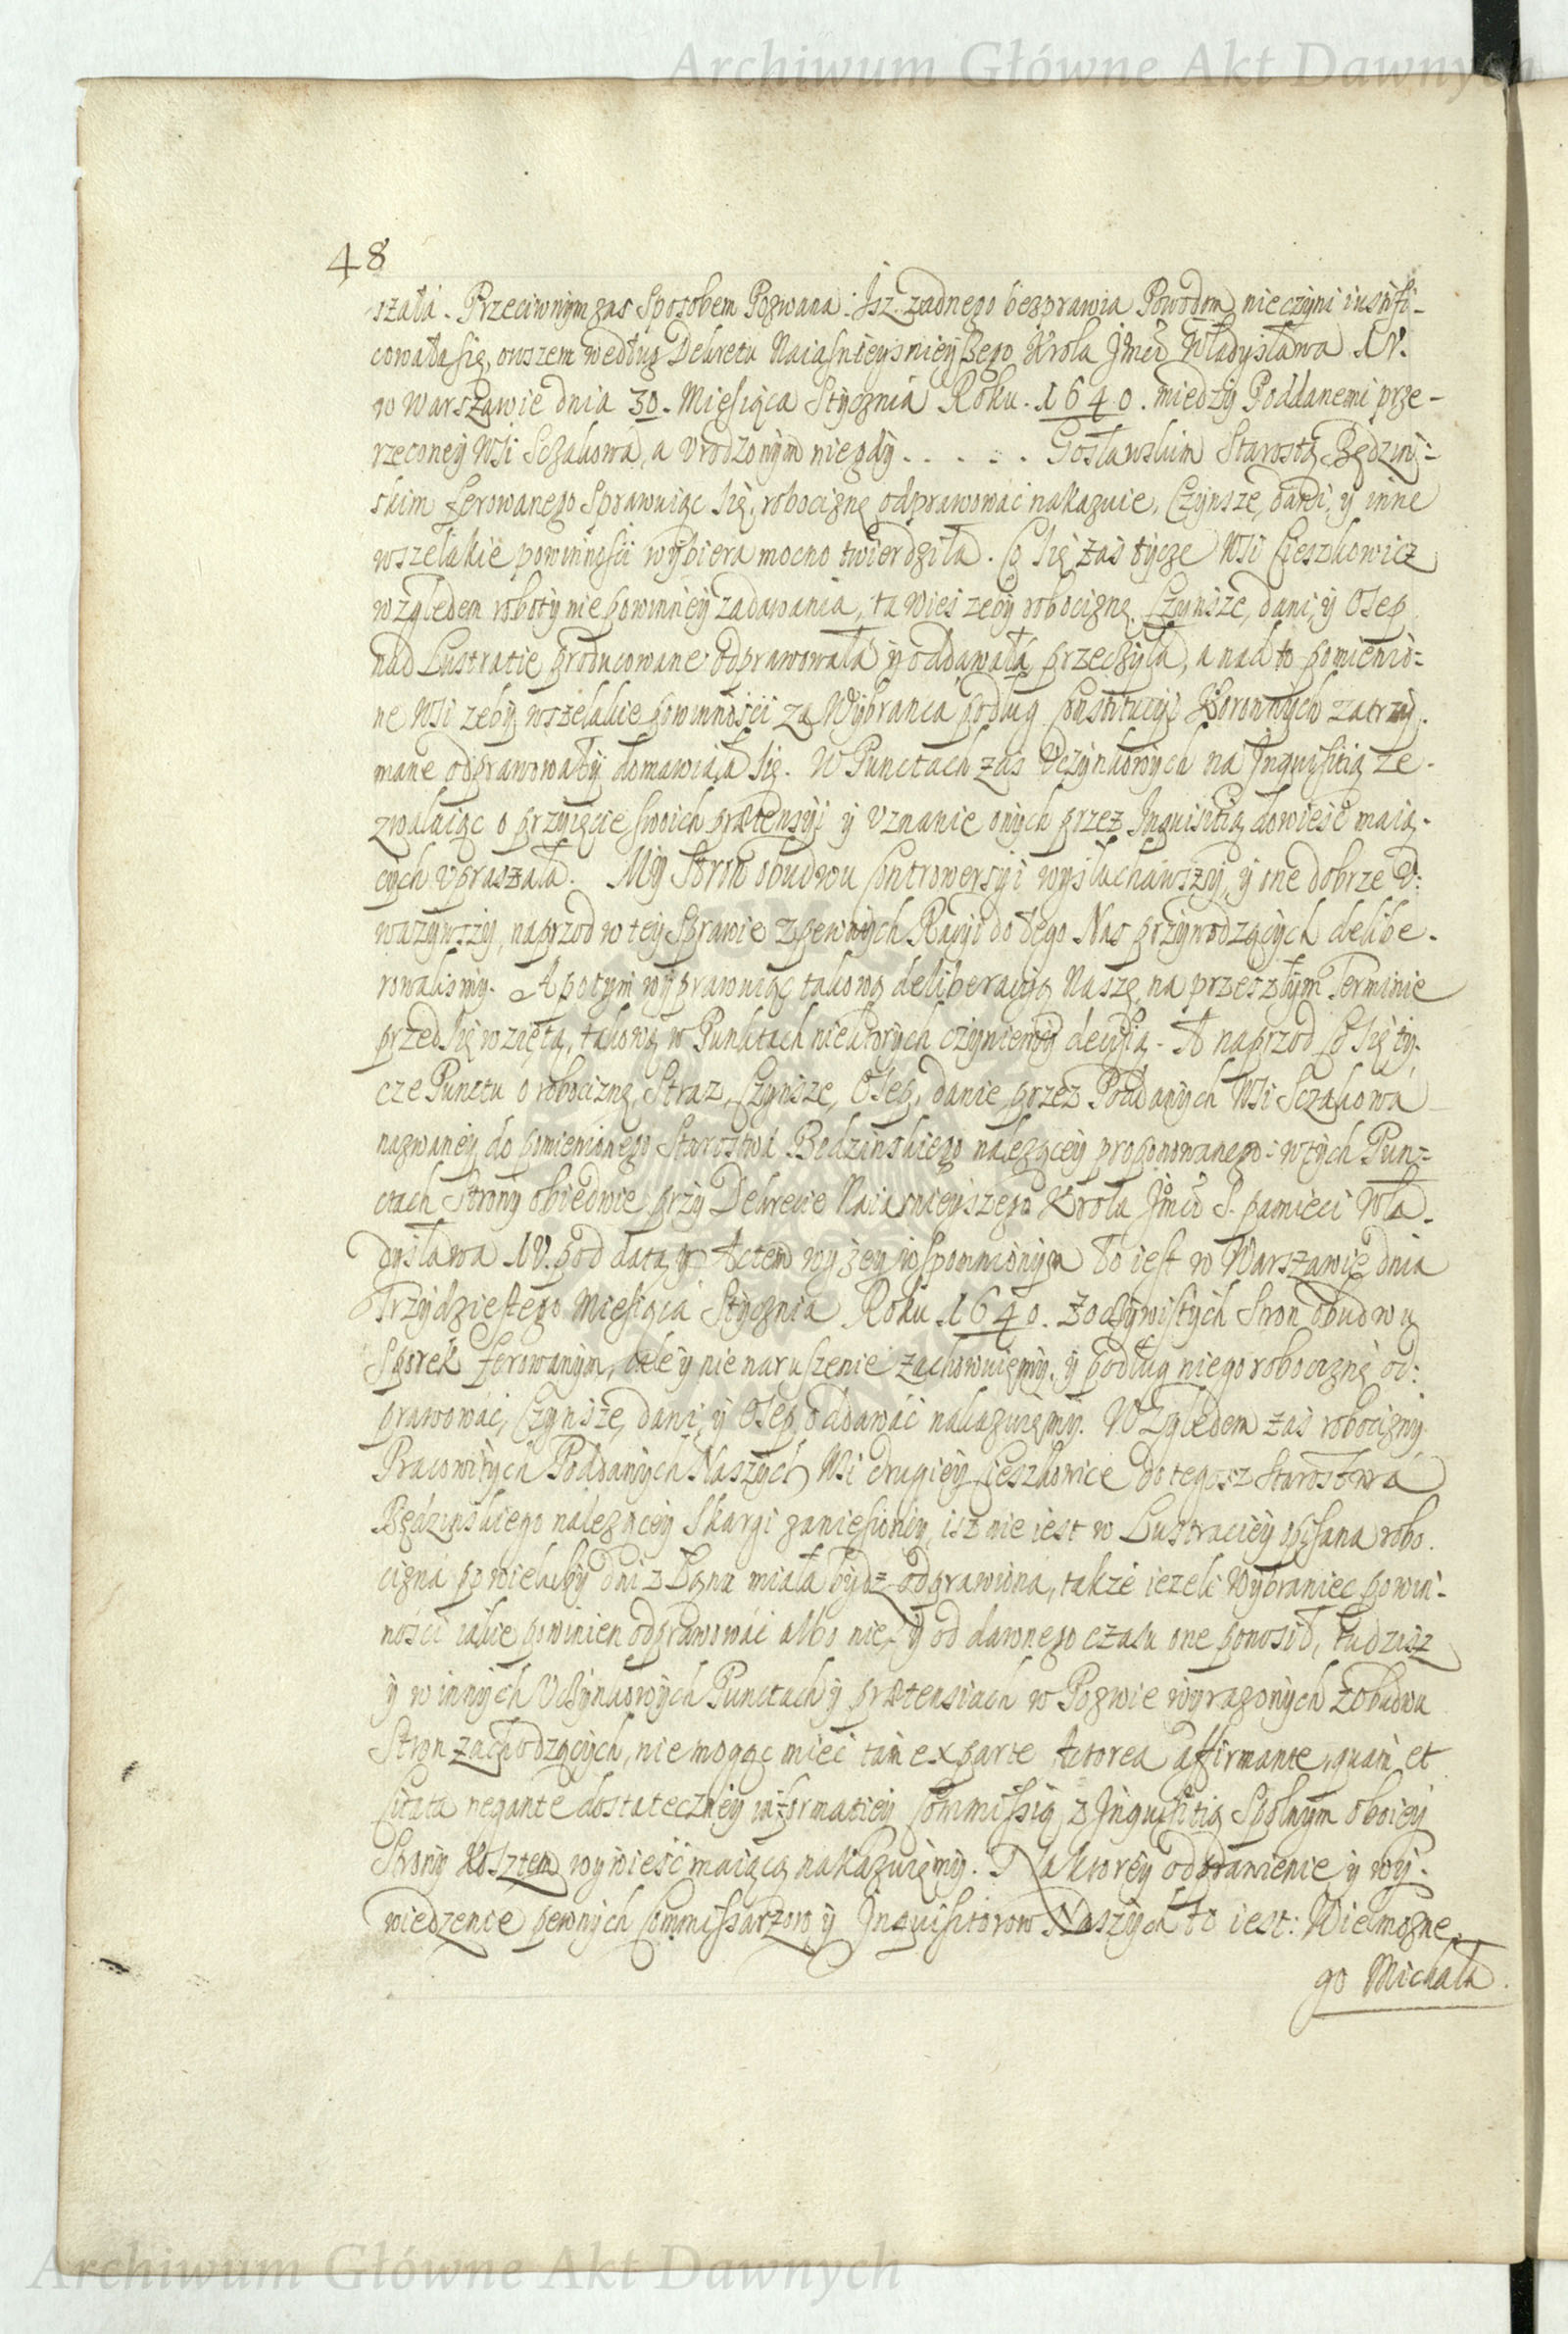 Archiwum Główne Akt Dawnych
48
szała. Przeciwnym zas Sposobem Pozwana: Isz zadnego bezprawia Powodom nieczyni iustifi-
cowała się, owszem według Dekretu Naiasnieysnieyszego Krola Jmci Władysława IV.
w Warszawie dnia 30. Miesiąca Stycznia Roku. 1640. miedzy Poddanemi prze-
rzeconey Wsi Sczakowa, a Vrodzonym niegdy . . . . . Gosławskim Starostą Będziń-
skim ferowanego Sprawuiąc się, robociznę odprawować nakazuie, Czynsze, dani, y inne
wszelakie powinnosci wybiera mocno twierdziła. Co się zas tycze Wsi Cieszkowicz
względem roboty niepowinney zadawania, ta wies zeby robociznę, Czynsze, dani, y Osep
nad Lustratie producowane odprawowała y oddawała przeczyła, a nad to pomienio=
ne Wsi zeby wszelakie powinności za Wybranca podług Constitucyi Koronnych zatrzy-
mane odprawowały domawiała się. W Punctach zas Uczynkowych na Inquisitią ze-
zwalaiąc o przyięcie swoich prætensyi y Vznanie onych przez Inquisitią dowieść maią-
cych Vpraszała. My Stron obudwu Controwersyi wysłuchawszy, y one dobrze V:
wazywszy, naprzod w tey Sprawie z pewnych Racyi do tego Nas przywodzących delibe-
rowalismy. A potym wyprawuiąc takową deliberacyią Naszę, na przeszłym Terminie
przedsię wziętą, takową w Punktach niektorych czyniemy decisią. A naprzod Co się ty-
cze Punctu o robociznę, Straz, Czynsze, Osep, danie przez Poddanych Wsi Sczakowa
nazwaney do pomienionego Starostwa Bedzinskiego nalezącey proponowanego: w tych Pun-
ctach Strony obiedwie przy Dekrecie Naiasnieyszego Krola Jmci S. pamieci Wła-
dysława IV. pod datą y Actem wyzey wspomnionym to iest w Warszawie dnia
Trzydziestego Miesiąca Stycznia Roku 1640. z oczywistych Stron obudwu
Sporek ferowanym, cale y nienaruszenie zachowuiemy, y podług niego robociznę od:
prawować, Czynsze, dani, y Osep oddawać nakazuiemy. Względem zas robocizny
Pracowitych Poddanych Naszych Wsi drugiey Cieszkowice do tegosz Starostwa
Będzinskiego nalezącey Skargi zaniesioney, isz nie iest w Lustraciey opisana robo-
cizna po wielaby dni z Łanu miała bydz odprawiona, także iezeli Wybraniec powin-
ności iakie powinien odprawować albo nie, y od dawnego czasu one ponosił, tudzisz
y w innych Uczynkowych Punctach y prætensiach w Pozwie wyrazonych z obudwu
Stron zachodzących, nie mogąc mieć tam ex parte Actorea affirmante, quam et
Citata negante dostateczney informatiey Commissią z Inquisitią Spolnym oboiey
Strony Kosztem wywieść maiącą nakazuiemy. Na ktorey odprawienie y wy-
wiedzenie pewnych Commissarzow y Inquisitorow Naszych to iest: Wielmozne-
go Michała
Archiwum Główne Akt Dawnych